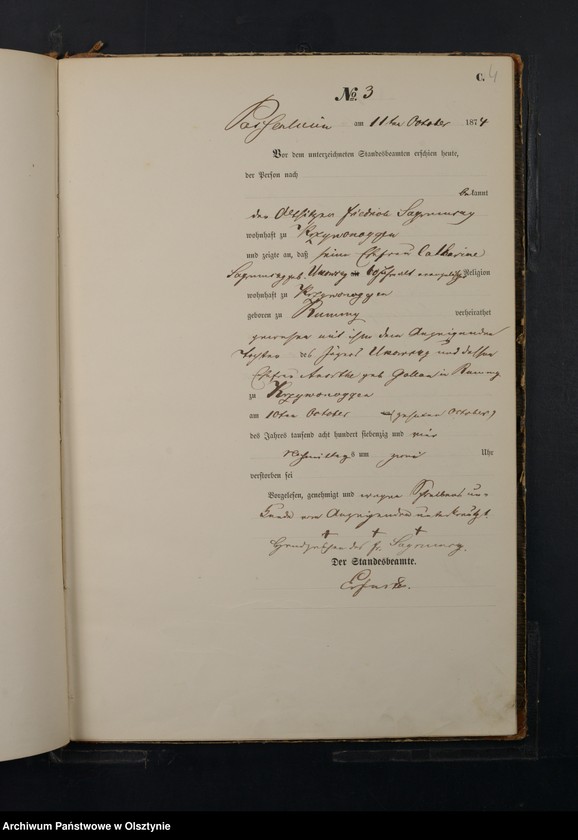 C. 4
No. 3
Passenheim am 11ten October 1874
Vor dem unterzeichneten Standesbeamten erschien heute,
der Person nach
bekannt
der Altsitzer Friedrich
wohnhaft zu Krzywonoggen
und zeigte an, daß seine Ehefrau Catharine
geb. alt evangelischer Religion
wohnhaft zu Krzywonoggen
geboren zu Rummy verheirathet
gewesen mit ihm dem Anzeigenden
Tochter des Jägers und dessen
Ehefrau geb. Gollan in Rummy
zu Krzywonoggen
am 10ten October (zehnten October)
des Jahres tausend acht hundert siebenzig und vier
Nachmittags um zwei Uhr
verstorben sei
Vorgelesen, genehmigt und wegen Schreibens un-
kunde vom Anzeigenden unterkreuzt.
+ + +
Handzeichen des Fr.
Der Standesbeamte.
Archiwum Państwowe w Olsztynie